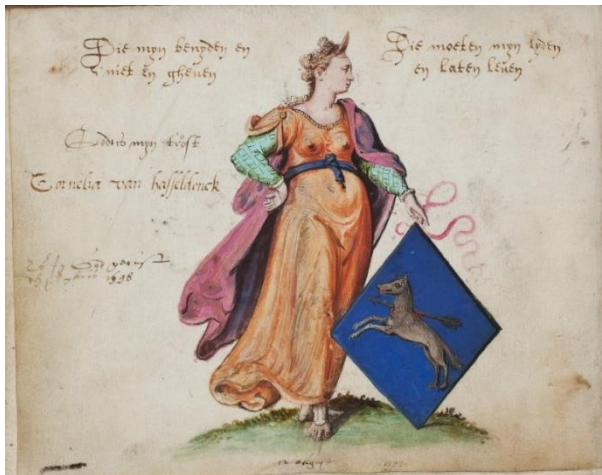 Die myn benyden en
niet en gheuen
Die moeten myn lyden
en laten leuen
Godt is myn trost
Cornelia van hasseldonck
1598